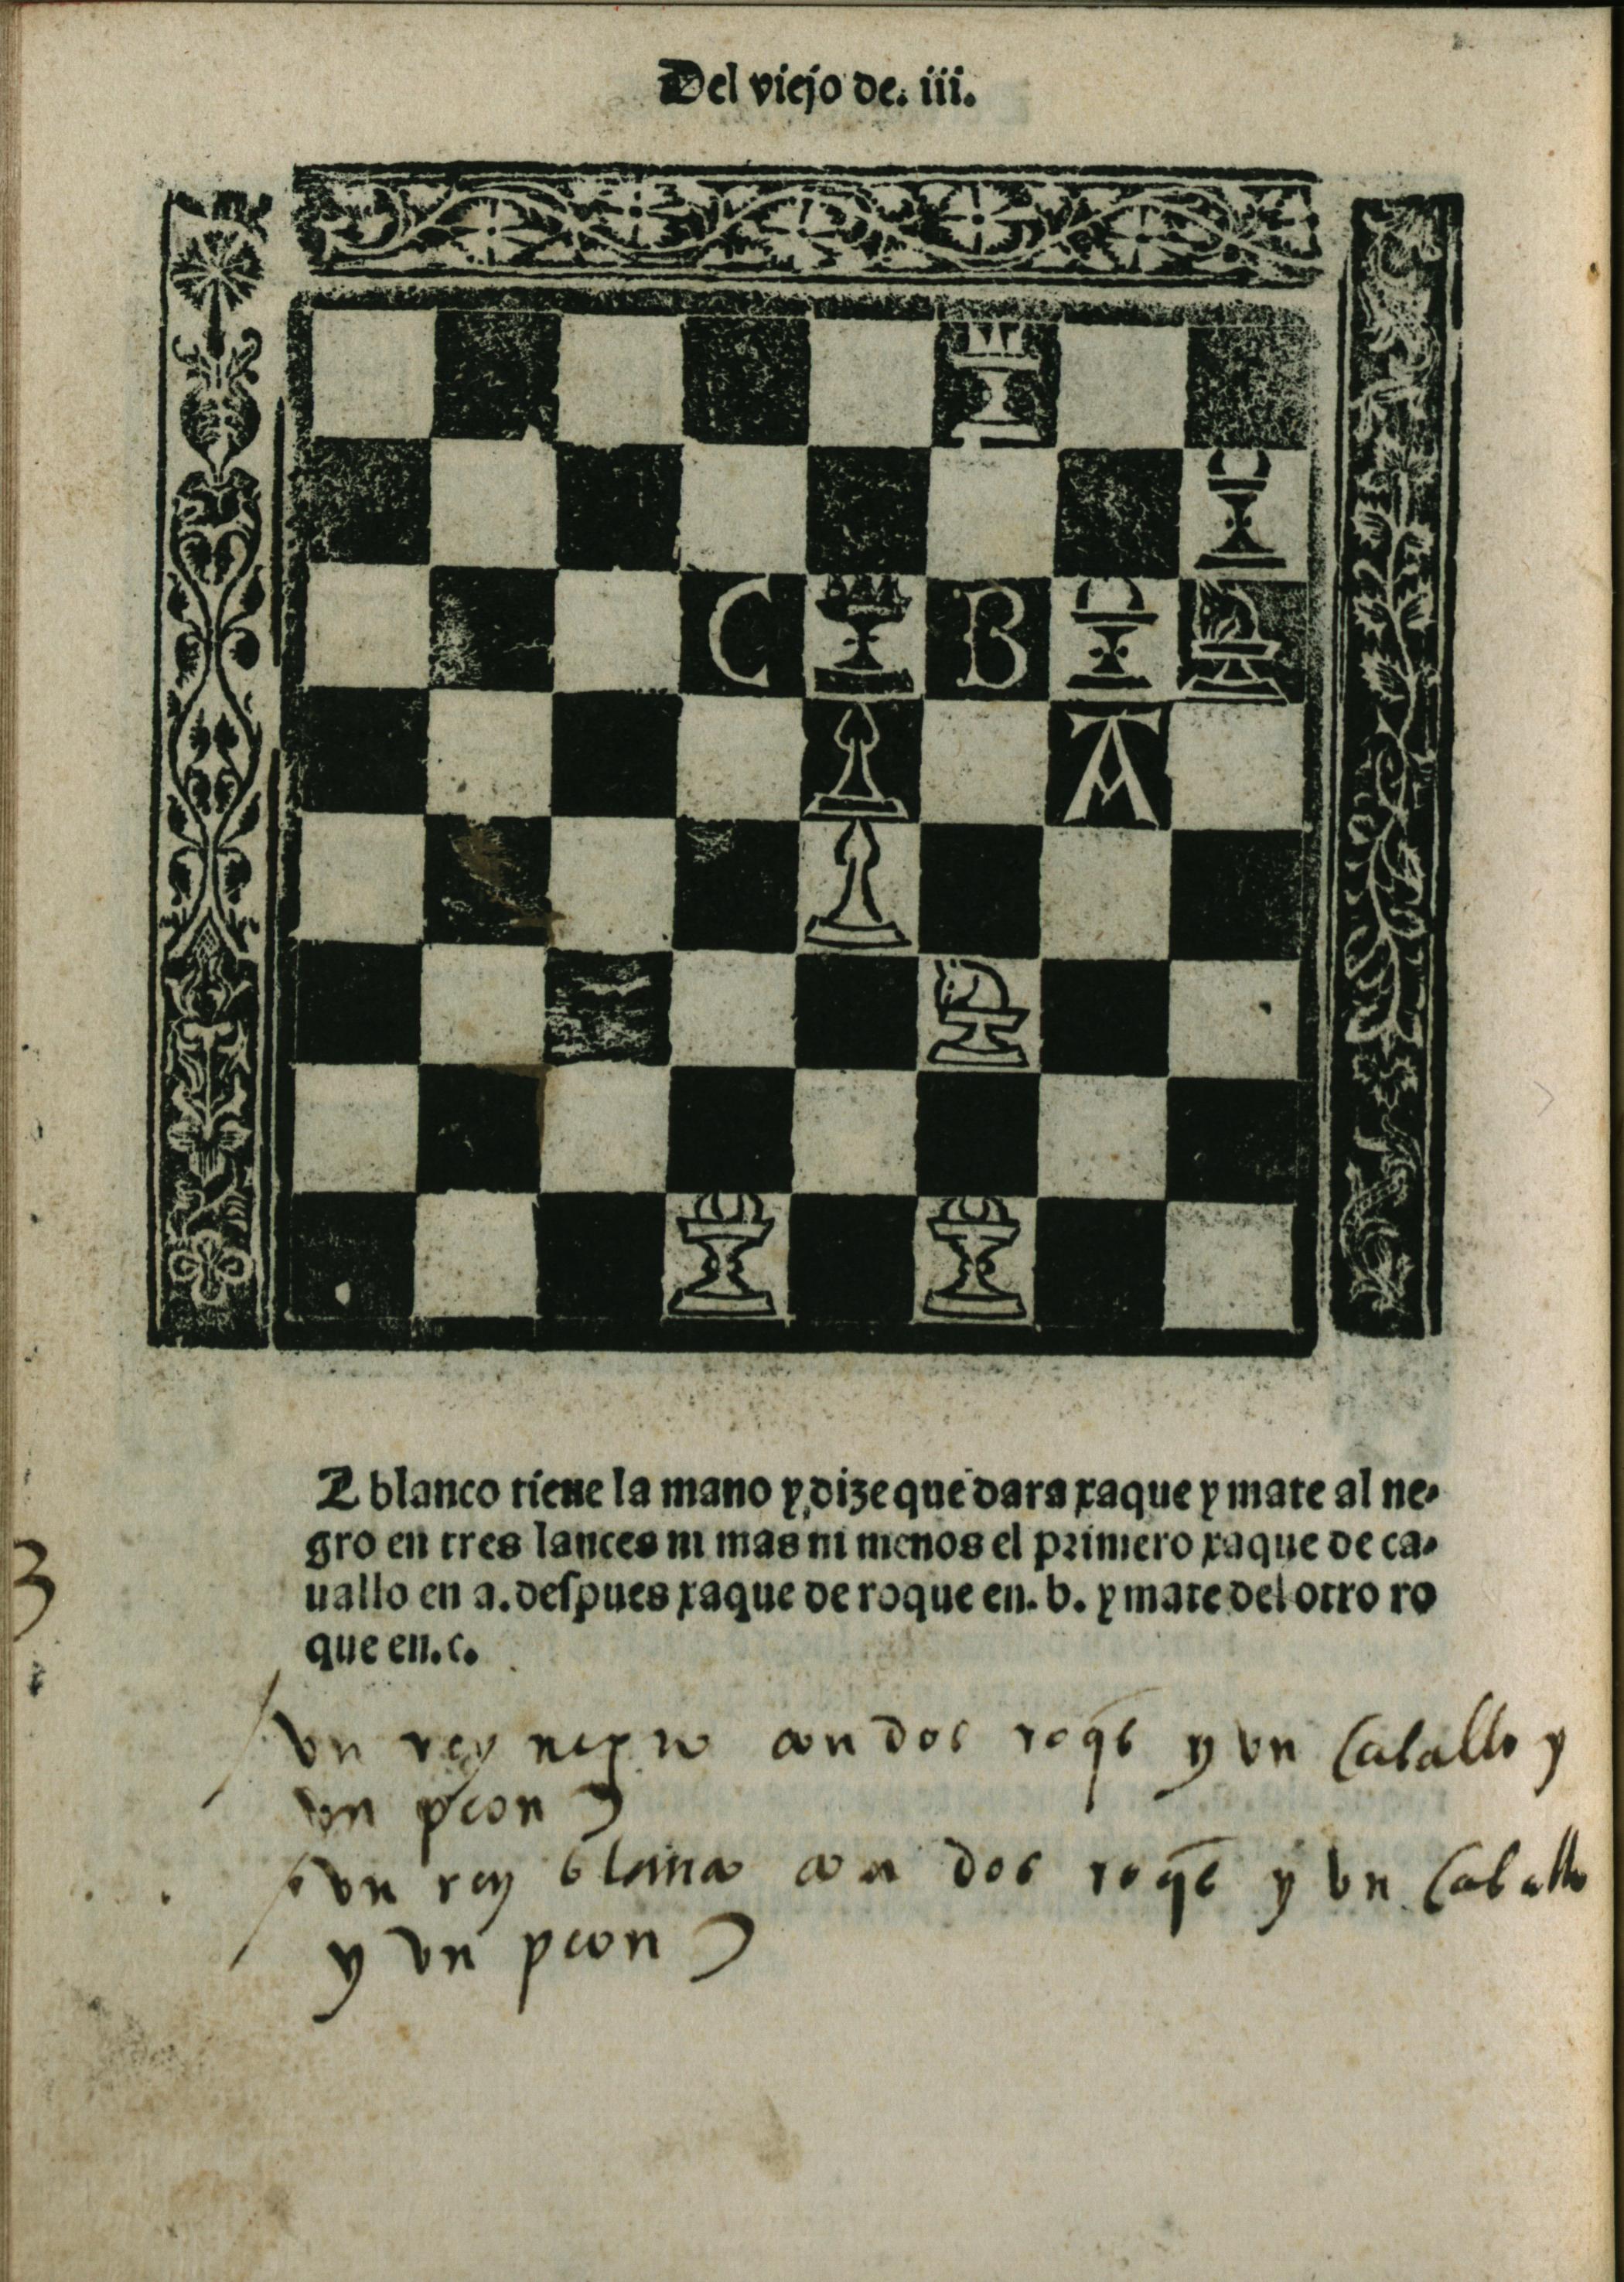 Del viejo de. iii.
C B
A
E blanco tiene la mano y dize que dara xaque y mate al ne-
gro en tres lances ni mas ni menos el primero xaque de ca-
uallo en a. despues xaque de roque en. b. y mate del otro ro
que en. c.
3
vn rey negro con dos roq̄s y vn caballo y
vn peon
vn rey blanco con dos roq̄s y vn caballo
y vn peon